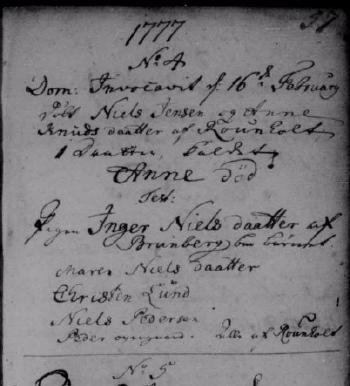 1777
57
No 4
Dom: Invocavit d: 16 February
Niels Jensen og Anne
Knuds daatter af Rounholt
1 Daatter, Kaldet
Anne død
Test:
Pigen Inger Niels daatter af
Brünberg bar barnet
Maren Niels daatter
Christen Lund
Niels Pedersen
Peder Alle af Rounholt
No 5